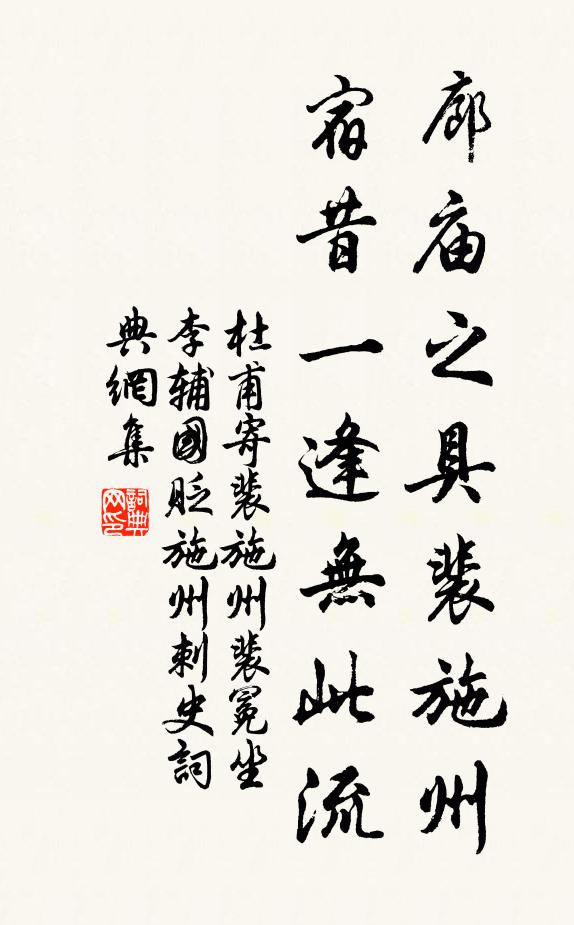 廊庙之具裴施州
宿昔一逢無此流
杜甫寄裴施州裴冕坐
李輔國貶施州刺史詞
典網集
詞典网印